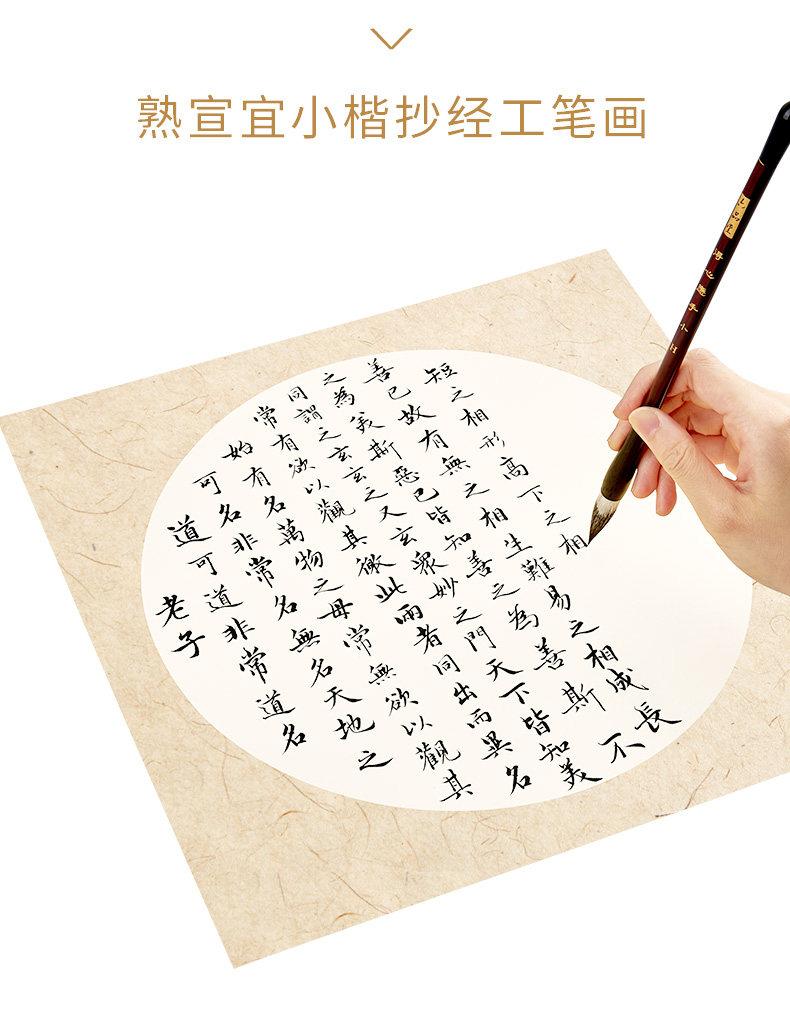 熟宣宜小楷抄经工笔画
老子
道可道非常道名
可名非常名無名天地之
始有名萬物之母常無欲以觀其
常有欲以觀其徼此兩者同出而異名
同謂之玄玄之又玄衆妙之門天下皆知美
之為美斯惡已皆知善之為善斯不
善已故有無之相生難易之相成長
短之相形高下之相
得心應手小